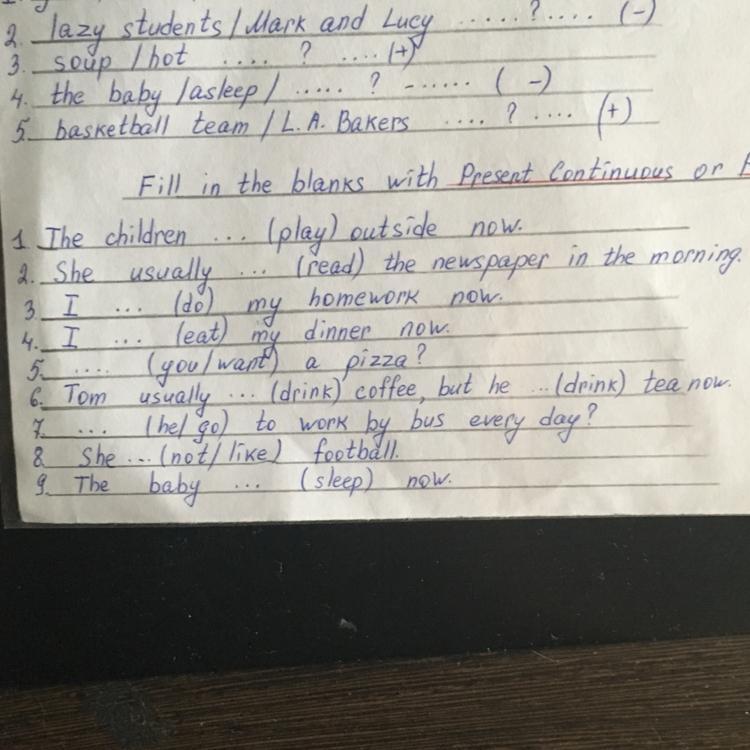 2. lazy students / Mark and Lucy ......?.... (-)
3. soup / hot .... ? .... (+)
4. the baby / asleep / ..... ? - ...... ( - )
5. basketball team / L.A. Bakers .... ? .... (+)
Fill in the blanks with Present Continuous or
1. The children ... (play) outside now.
2. She usually ... (read) the newspaper in the morning.
3. I ... (do) my homework now.
4. I ... (eat) my dinner now.
5. .... (you/want) a pizza?
6. Tom usually ... (drink) coffee, but he ... (drink) tea now.
7. ... (he/go) to work by bus every day?
8. She ... (not/like) football.
9. The baby ... (sleep) now.